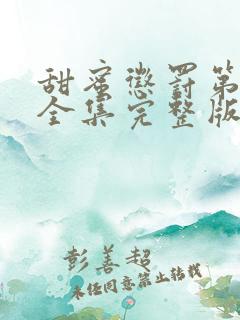 甜蜜惩罚第
全集完整版
彭善超
未经同意禁止转载